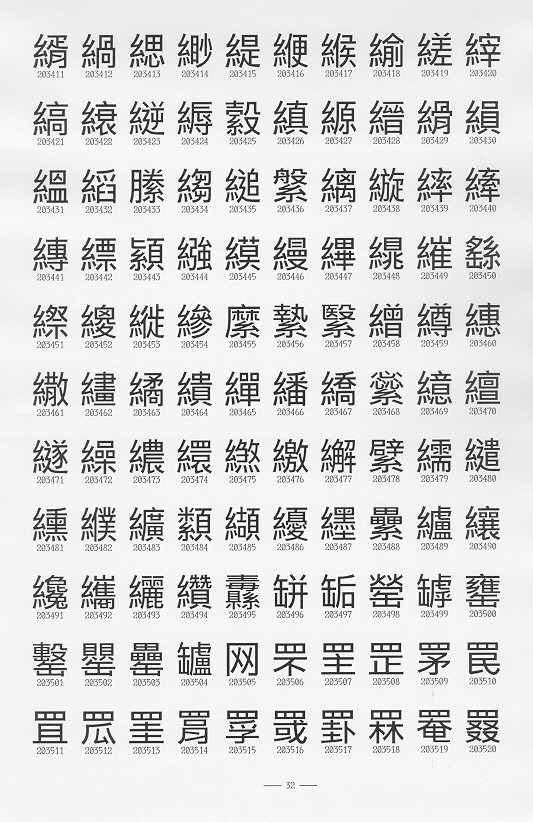 縃 緺 緦 緲 緹 緶 緱 緰 縒 縡
203411 203412 203413 203414 203415 203416 203417 203418 203419 203420
縞 縗 縌 縟 縠 縝 縓 縉 縎 縜
203421 203422 203423 203424 203425 203426 203427 203428 203429 203430
縕 縚 縢 縐 縋 縏 縭 縼 繂 縴
203431 203432 203433 203434 203435 203436 203437 203438 203439 203440
縳 縹 繈 縸 縵 縪 繀 繇
203441 203442 203443 203444 203445 203446 203447 203448 203449 203450
縩 縰 縿 縻 縶 繄 繒 繜 繐
203451 203452 203453 203454 203455 203456 203457 203458 203459 203460
繖 繣 繘 繢 繟 繙 繑 繠 繶 繵
203461 203462 203463 203464 203465 203466 203467 203468 203469 203470
繸 繰 繷 繯 繎 繳 繲 繴 繻 繾
203471 203472 203473 203474 203475 203476 203477 203478 203479 203480
纁 纀 纊 纇 纈 纋 纆 纍 纑 纕
203481 203482 203483 203484 203485 203486 203487 203488 203489 203490
纔 纗 纚 纘 纛 缾 缿 罃 罅 罋
203491 203492 203493 203494 203495 203496 203497 203498 203499 203500
罊 罌 罍 罏 网 罘 罜 罡 罞 罠
203501 203502 203503 203504 203505 203506 203507 203508 203509 203510
罝 罛 罣 罥 罦 罭 罫 罧 罨 罬
203511 203512 203513 203514 203515 203516 203517 203518 203519 203520
— 32 —